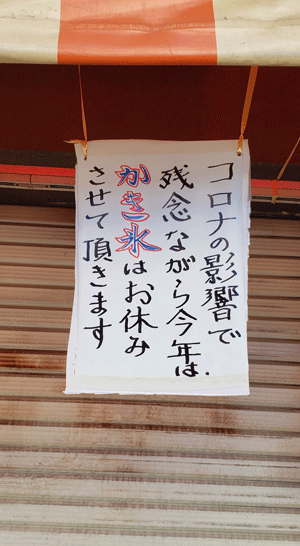 コロナの影響で
残念ながら今年は
かき氷はお休み
させて頂きます